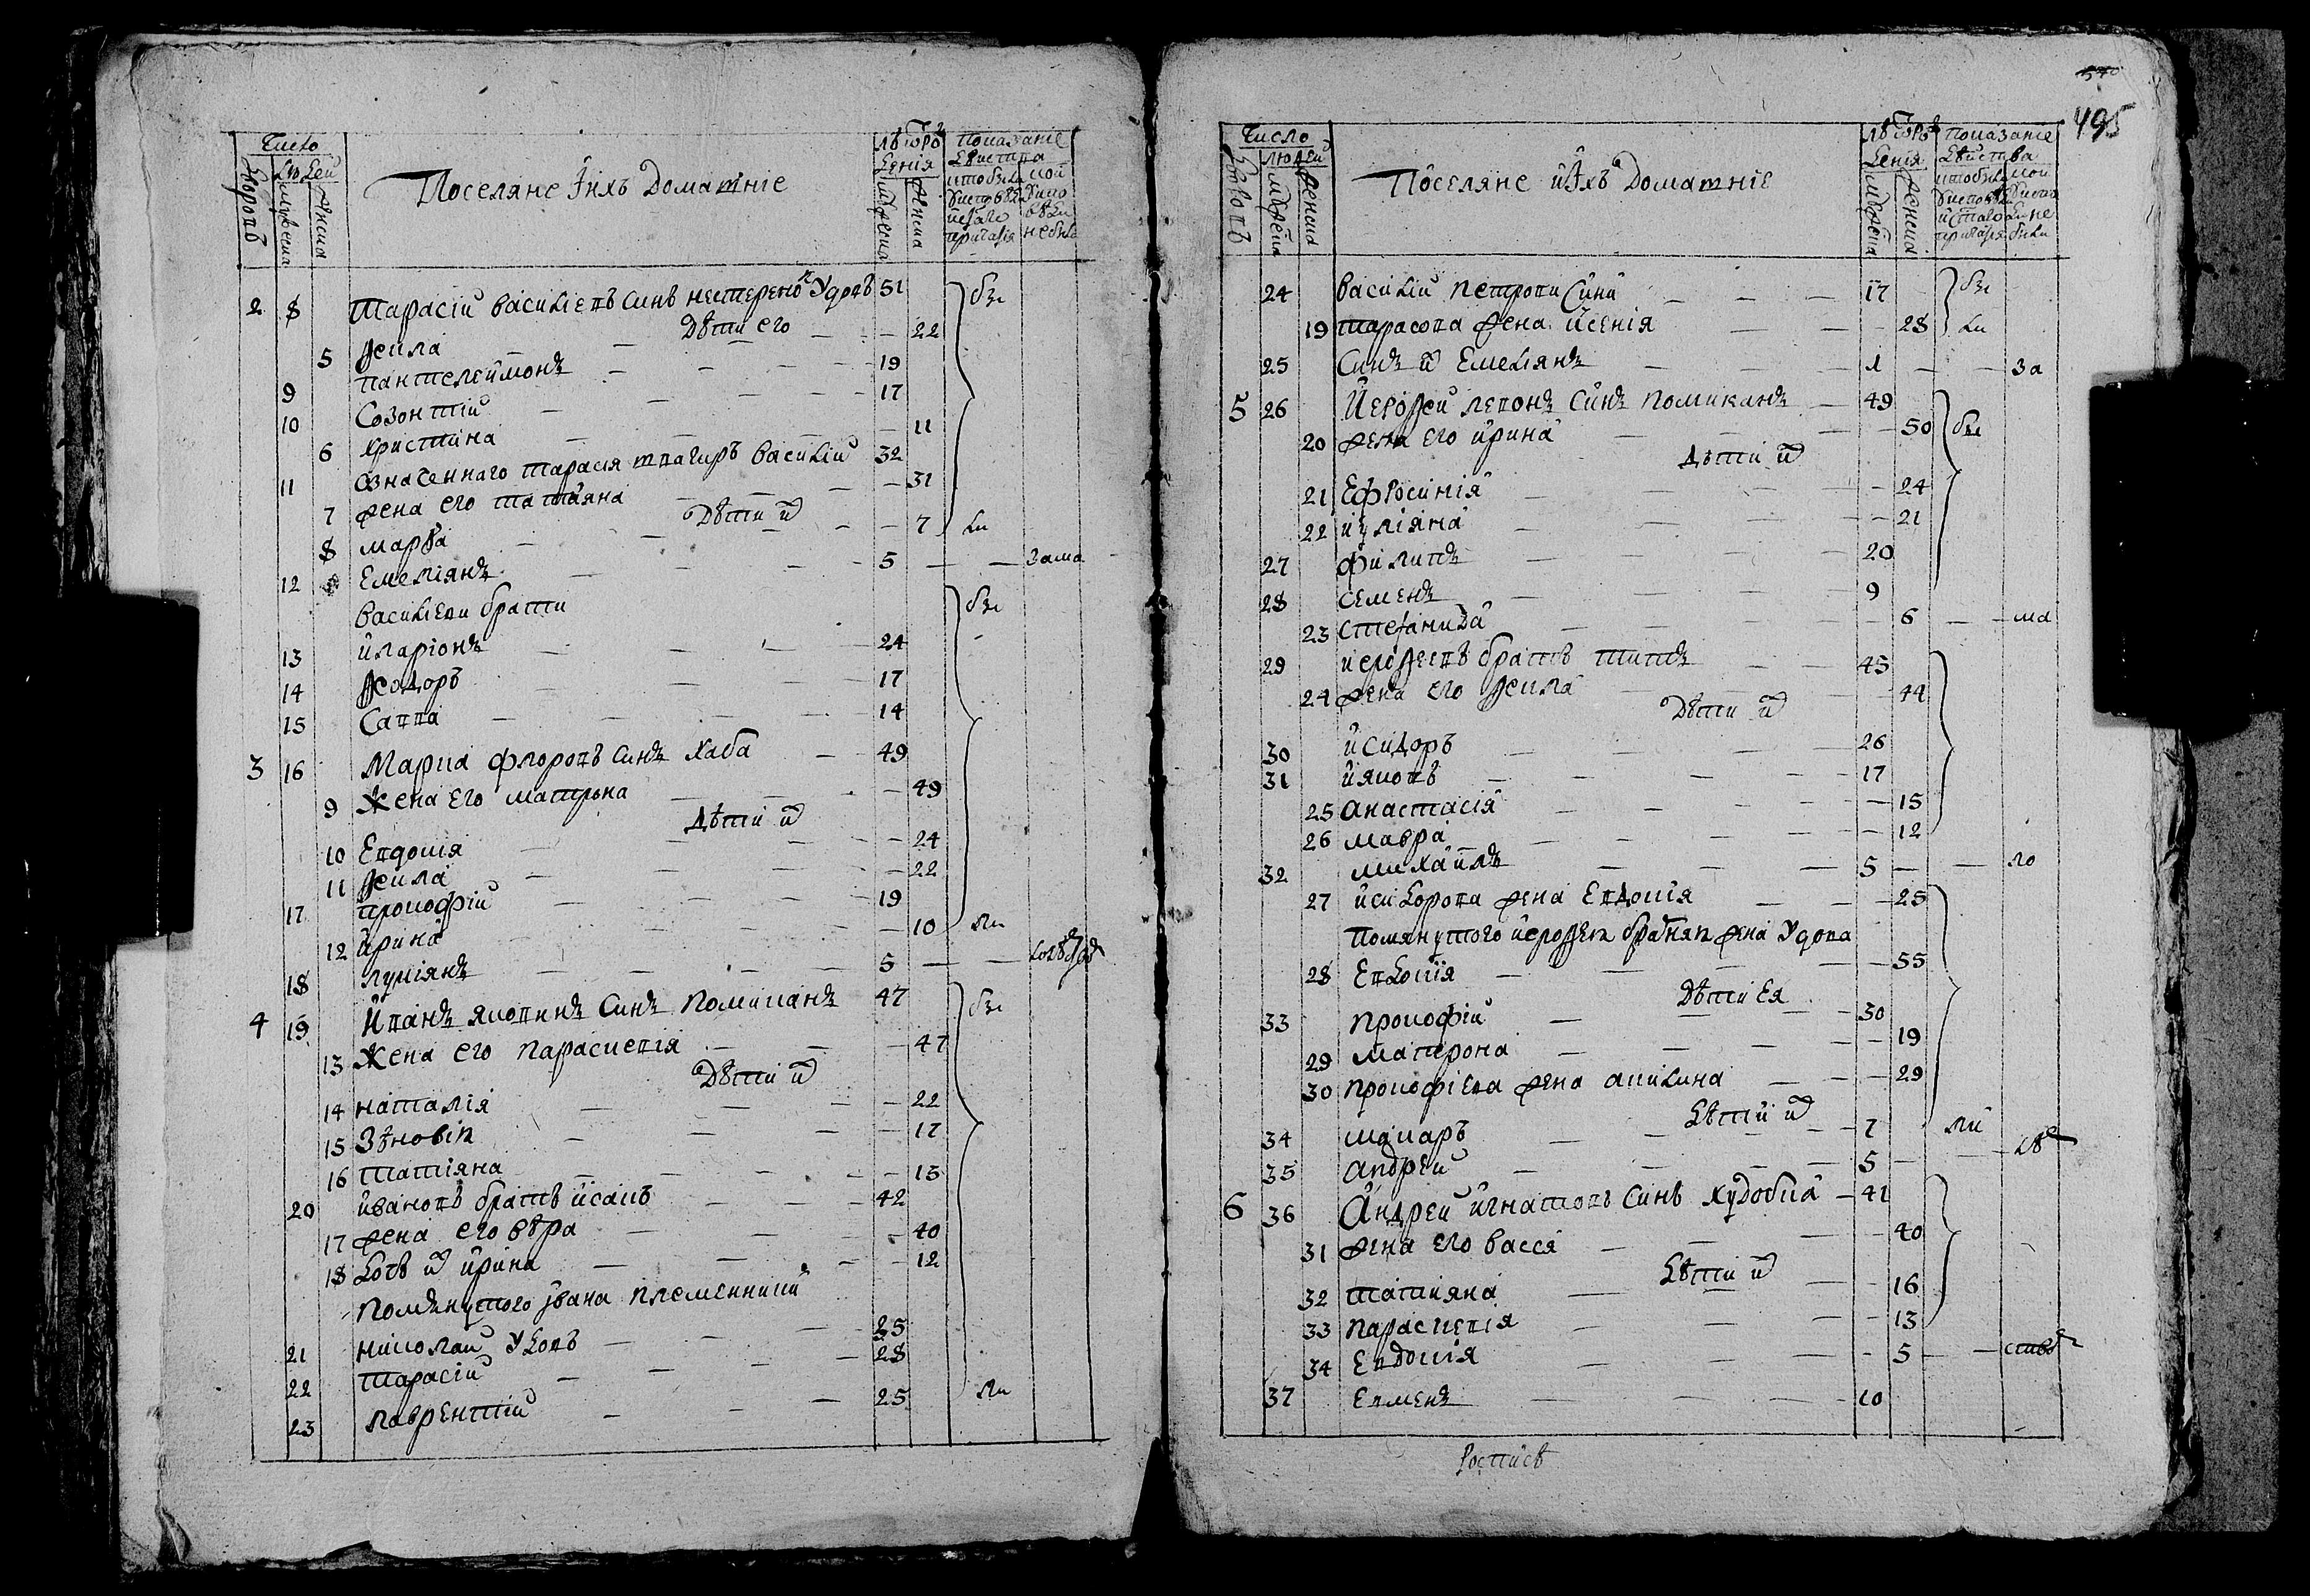 Число
Людей
Дворовъ
Мужеска
Женска
Поселяне Ихъ Домашніе
Лѣтъ рож
денія
Мужеска
Женска
Показаніе
Действа
2 8 Тарасій Василіевъ синъ нестеренко Удовъ 51 бы
Дѣти его
5 Θекла 22
9 Пантелеймонъ 19
10 Созонтій 17
6 Христина 11
11 Означеннаго Тарасія шпагиръ Василій 32
7 жена его татіяна 31
Дѣти ихъ
8 марθа 7 ли
12 Емеліянъ 5 зама
Василіеви брати бы
13 иларіонъ 24
14 Θеодоръ 17
15 Савва 14
3 16 Марка флоровъ Синъ хаба 49
9 Жена его матрона 49
Дѣти ихъ
10 Евдокія 24
11 Θекла 22
17 прокофій 19
12 ирина 10 ли
18 лукіянъ 5
4 19 Иванъ яковинъ Синъ Поликанъ 47 бы
13 Жена его параскевія 47
Дѣти ихъ
14 наталія 22
15 Зѣновія 17
16 татіяна 15
20 ивановъ братъ исакъ 42
17 жена его вѣра 40
18 дочъ ихъ ирина 12
Помянутого ивана племенники
21 николай удовъ 35
22 тарасій 28
23 лаврентій 25 ли
495
Число
Людей
Дворовъ
Мужеска
Женска
Поселяне ихъ Домашніе
Лѣтъ рож
денія
Мужеска
Женска
Показаніе
Дѣйства
24 Василій петровъ Синъ 17 бы
19 тарасова жена ксенія 28 ли
25 Синъ ихъ Емеліянъ 1 за
5 26 Иероθей левонъ Синъ поликанъ 49
20 жена его ирина 50 бы
Дѣти ихъ
21 Ефросинія 24
22 иуліяна 21
27 филипъ 20
28 семенъ 9
23 Стефанида 6 ма
29 иероθеевъ братъ титъ 45
24 жена его Θекла 44
Дѣти ихъ
30 исидоръ 26
31 ияковъ 17
25 анастасія 15
26 мавра 12
32 михаилъ 5 ло
27 исидорова жена Евдокія 25
помянутого иероθея братняя жена Удова
28 Евдокія 55
Дѣти Ея
33 прокофій 30
29 матрона 19
30 прокофіева жена акилина 29
Дѣти ихъ
34 макаръ 7 ли
35 андрей 5
6 36 Андрей игнатовъ Синъ худобка 41
31 жена его васся 40
Дѣти ихъ
32 татияна 16
33 параскевія 13
34 Евдокія 5
37 Евменъ 10
Роспись